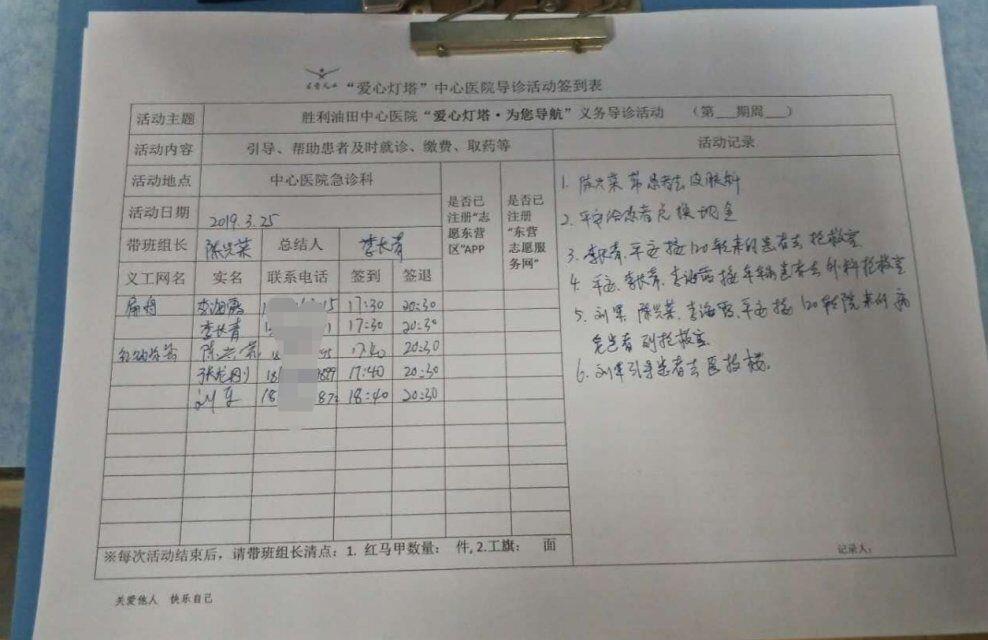 “爱心灯塔”中心医院导诊活动签到表
活动主题 胜利油田中心医院“爱心灯塔·为您导航”义务导诊活动 （第___期周___）
活动内容 引导、帮助患者及时就诊、缴费、取药等 活动记录
活动地点 中心医院急诊科 是否已注册“志愿东营区”APP 是否已注册“东营志愿服务网”
活动日期 2019.3.25
带班组长 陈兴荣 总结人 李长青
义工网名 实名 联系电话 签到 签退
李海霞 15 17:30 20:30
李长青 1 17:30 20:30
陈兴荣 95 17:40 20:30
张龙刚 18 899 17:40 20:30
刘军 18 87 18:40 20:30
1. 陈兴荣 带患者去皮肤科
2. 平安给患者兑换现金
3. 李长青、平安接120转来的患者去抢救室
4. 平安、李长青、李海霞接车辆患者去外科抢救室
5. 刘军 陈兴荣、李海霞、平安接120转院来的病
危患者到抢救室
6. 刘军引导患者去医技楼。
※每次活动结束后，请带班组长清点：1. 红马甲数量： 件, 2.工旗： 面
记录人：
关爱他人 快乐自己